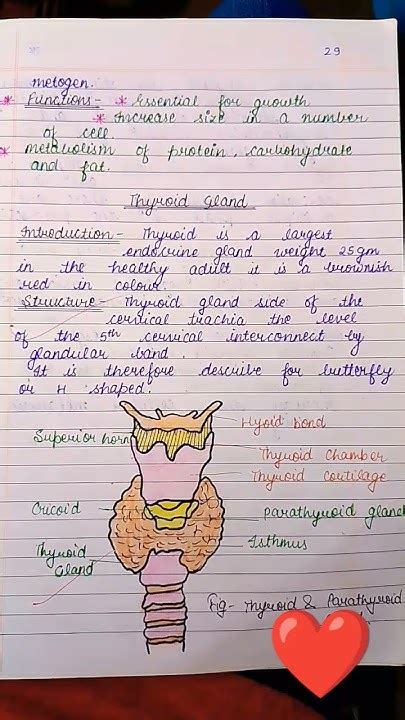 29
metogen.
* Functions - * Essential for growth
* Increase size in a number
of cell
* metabolism of protein, carbohydrate
and fat.
Thyroid Gland
Introduction - Thyroid is a largest
endocrine gland weight 25gm
in the healthy adult it is a brownish
red in colour.
Structure - Thyroid gland side of the
cervical trachia the level
of the 5th cervical interconnect by
glandular band.
It is therefore describe for butterfly
or H shaped.
Hyoid bond
Superior horn
Thyroid chamber
Thyroid coutilage
Cricoid
Parathyroid gland
Isthmus
Thyroid
Gland
Fig - Thyroid & Parathyroid